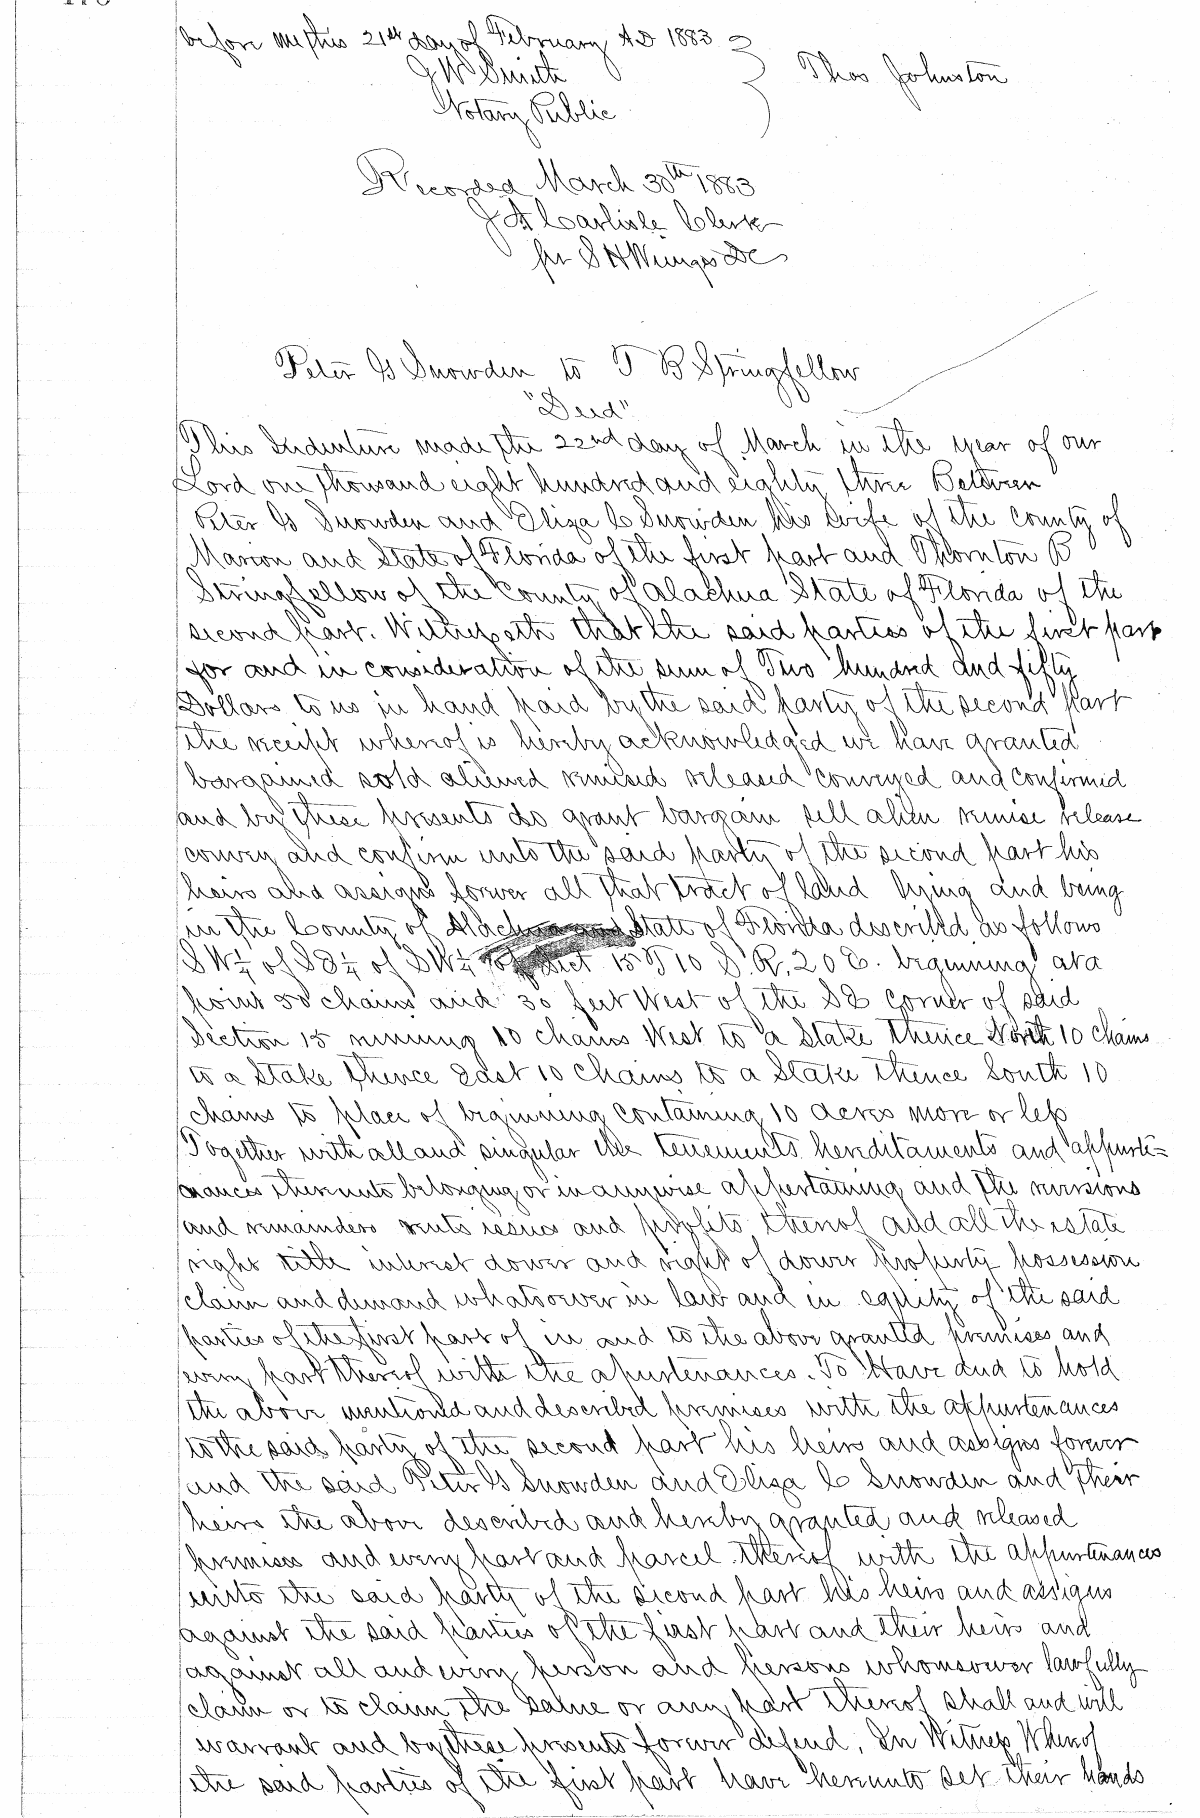 before me this 21st day of February A D 1883
J W Smith
Notary Public
Thos Johnston
Recorded March 30th 1883
J A Carlisle Clerk
per S H Wienges DC
Peter G Snowden to T B Stringfellow
"Deed"
This Indenture made the 22nd day of March in the year of our
Lord one thousand eight hundred and eighty three Between
Peter G Snowden and Eliza C Snowden his wife of the County of
Marion and State of Florida of the first part and Thornton B
Stringfellow of the County of Alachua State of Florida of the
second part. Witnesseth that the said parties of the first part
for and in consideration of the sum of Two hundred and fifty
Dollars to us in hand paid by the said party of the second part
the receipt whereof is hereby acknowledged we have granted
bargained sold aliened remised released conveyed and confirmed
and by these presents do grant bargain sell alien remise release
convey and confirm unto the said party of the second part his
heirs and assigns forever all that tract of land lying and being
in the County of Alachua and State of Florida described as follows
SW¼ of SE¼ of SW¼ of Sect 15 T 10 S. R. 20 E. beginning at a
point 50 chains and 30 feet West of the SE corner of said
Section 15 running 10 chains West to a Stake thence North 10 chains
to a Stake thence East 10 chains to a Stake thence South 10
chains to place of beginning containing 10 acres more or less
Together with all and singular the tenements hereditaments and appurte=
nances thereunto belonging or in anywise appertaining and the reversions
and remainders rents issues and profits thereof and all the estate
right title interest dower and right of dower property possession
claim and demand whatsoever in law and in equity of the said
parties of the first part of in and to the above granted premises and
every part thereof with the apurtenances. To Have and to hold
the above mentioned and described premises with the appurtenances
to the said party of the second part his heirs and assigns forever
and the said Peter G Snowden and Eliza C Snowden and their
heirs the above described and hereby granted and released
premises and every part and parcel thereof with the appurtenances
unto the said party of the second part his heirs and assigns
against the said parties of the first part and their heirs and
against all and every person and persons whomsoever lawfully
claim or to claim the same or any part thereof shall and will
warrant and by these presents forever defend. In Witness Whereof
the said parties of the first part have hereunto set their hands